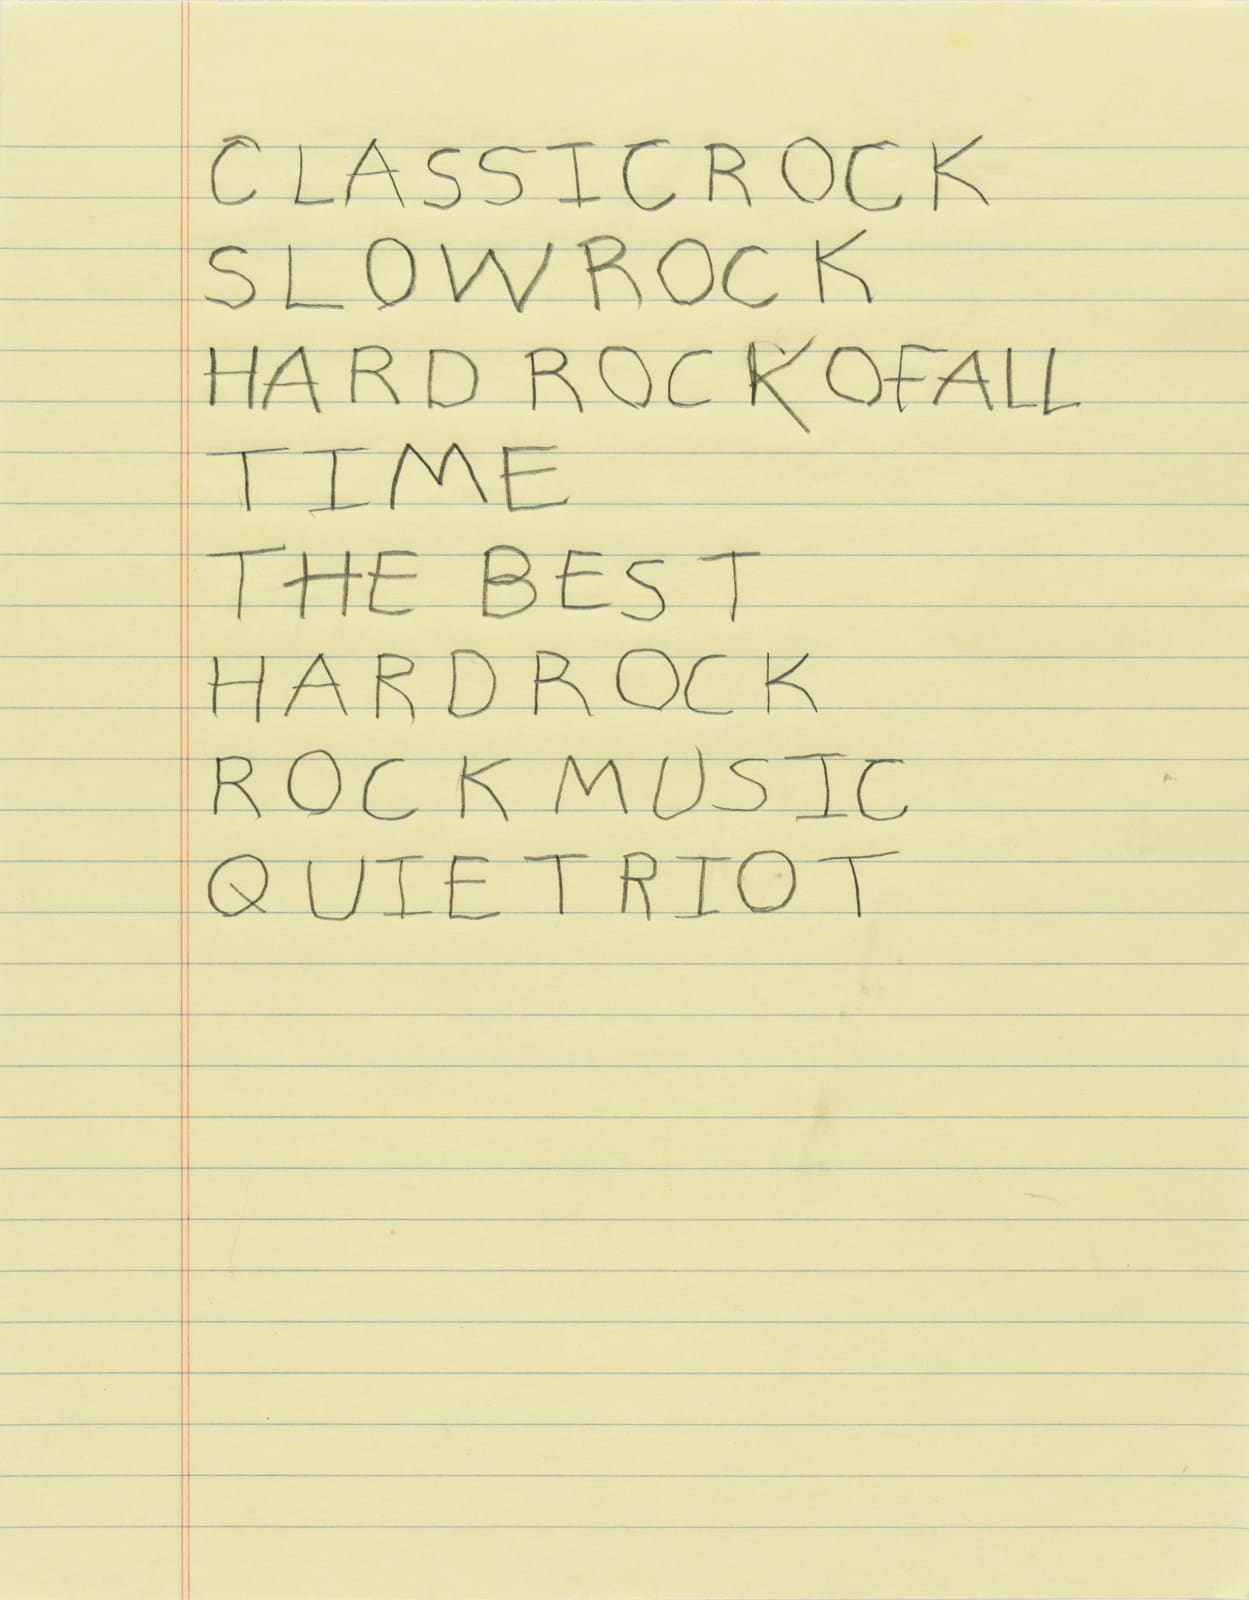 CLASSIC ROCK
SLOW ROCK
HARD ROCK OF ALL
TIME
THE BEST
HARD ROCK
ROCK MUSIC
QUIET RIOT